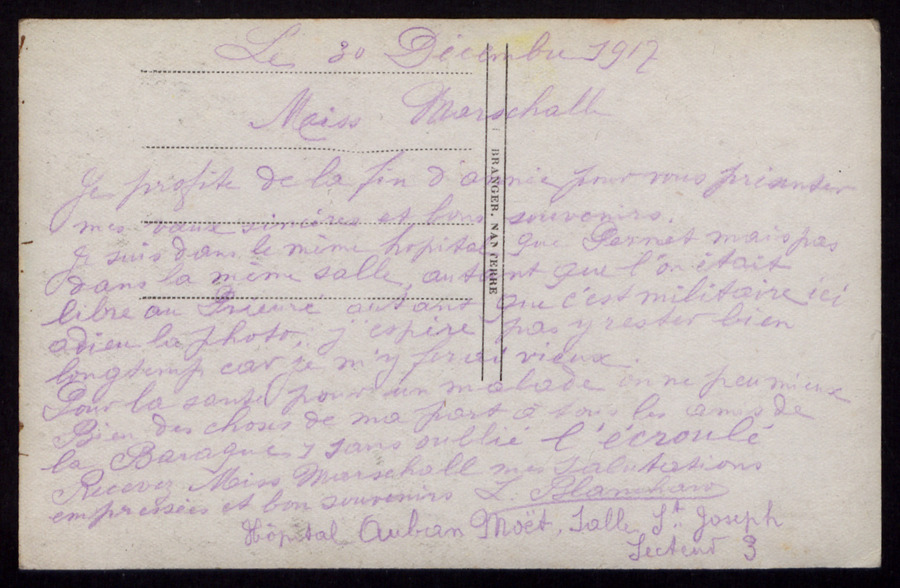 Le 30 Décembre 1917
Meiss Marschall
Je profite de la fin d'année pour vous présenter
mes vœux sincères et bons souvenirs.
Je suis dans le même hopital que Pernet mais pas
dans la même salle, autant que l'on était
libre au Prieuré autant que c'est militaire ici
adieu la photo, j'espère pas y rester bien
longtemp car je m'y ferai vieux.
Pour la santé pour un malade on ne peu mieux
Bien des choses de ma part à tous les amis de
la Baraque 7 sans oublié l'écroulé
Recevez Miss Marschall mes salutations
empressées et bon souvenirs L. Blanchard
Hôpital Auban Moët, Salle St Joseph
Secteur 3
BRANGER, NANTERRE